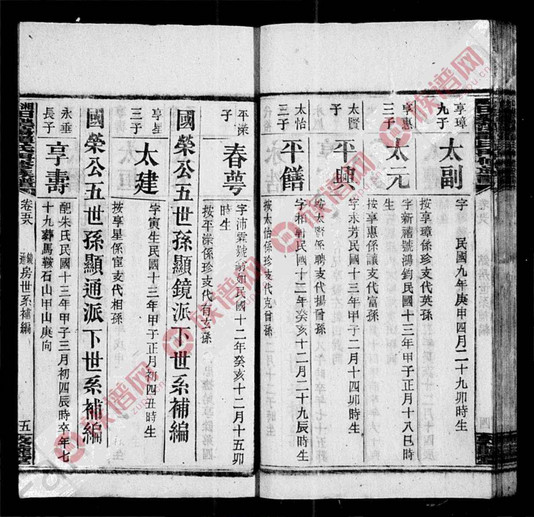 享璋
九子
太副
字 民國九年庚申四月二十九卯時生
按享璋係珍支代英孫
享惠
三子
太元
字新禧號鴻鈞民國十三年甲子正月十八巳時生
按享惠係讓支代富孫
太賢
子
平興
字永芳民國十三年甲子二月十四卯時生
按太賢係聘支代揚曾孫
太怡
三子
平饍
字相 民國十二年癸亥十二月二十九辰時生
按太怡係珍支代克曾孫
平漛
子
春萼
字沛雲 民國十二年癸亥十二月十五卯
時生
按平漛係珍支代有玄孫
國榮公五世孫顯鏡派下世系補編
享星
三子
太建
字寅生民國十三年甲子正月初四丑時生
按享星係宦支代相孫
國榮公五世孫顯通派下世系補編
永垂
長子
享壽
配朱氏民國十三年甲子三月初四辰時卒年七
十九葬馬鞍石山甲山庚向
卷
房世系補編
五
四
族谱网